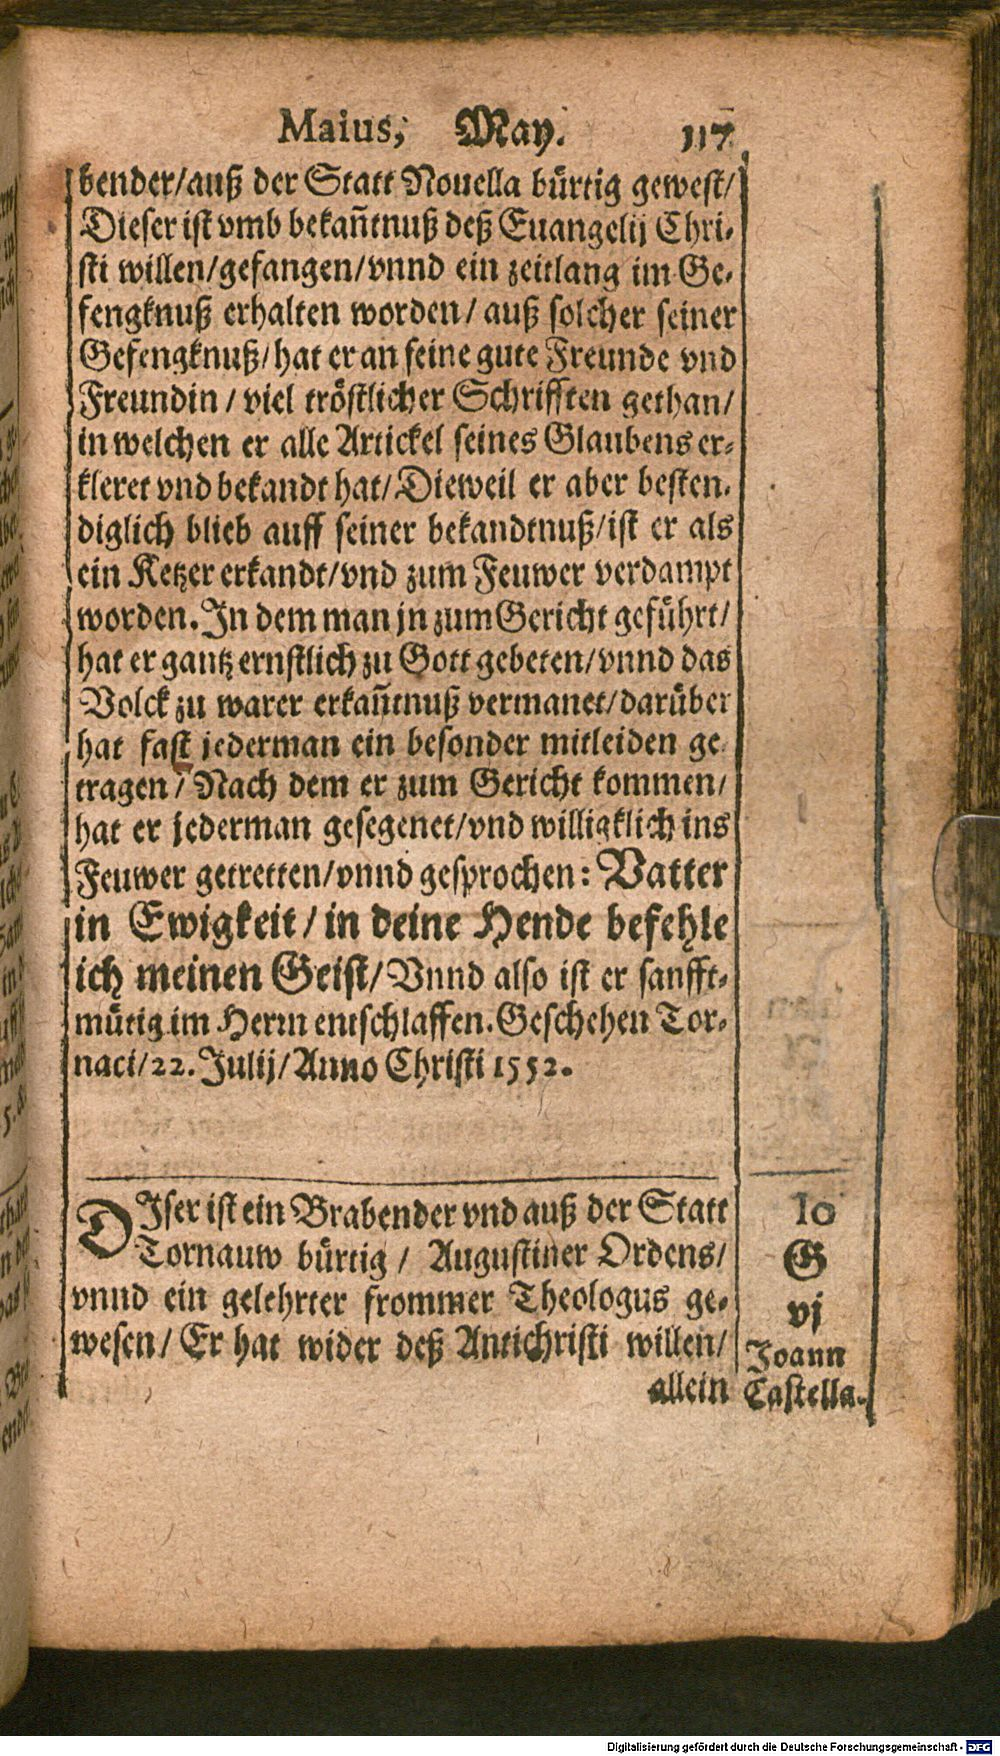 Maius, May. 117
bender/auß der Statt Nouella bürtig gewest/
Dieser ist vmb bekañtnuß deß Euangelij Chri-
sti willen/gefangen/vnnd ein zeitlang im Ge-
fengknuß erhalten worden/ auß solcher seiner
Gefengknuß/hat er an seine gute Freunde vnd
Freundin/ viel tröstlicher Schrifften gethan/
in welchen er alle Artickel seines Glaubens er-
kleret vnd bekandt hat/Dieweil er aber besten-
diglich blieb auff seiner bekandtnuß/ist er als
ein Ketzer erkandt/vnd zum Feuwer verdampt
worden. In dem man jn zum Gericht geführt/
hat er gantz ernstlich zu Gott gebeten/vnnd das
Volck zu warer erkañtnuß vermanet/darüber
hat fast jederman ein besonder mitleiden ge-
tragen/ Nach dem er zum Gericht kommen/
hat er jederman gesegenet/vnd willigklich ins
Feuwer getretten/vnnd gesprochen: Vatter
in Ewigkeit/ in deine Hende befehle
ich meinen Geist/ Vnnd also ist er sanfft-
mütig im Herrn entschlaffen. Geschehen Tor-
naci/22. Julij/Anno Christi 1552.
DIser ist ein Brabender vnd auß der Statt
Tornauw bürtig/ Augustiner Ordens/
vnnd ein gelehrter frommer Theologus ge-
wesen/ Er hat wider deß Antichristi willen/
allein
10
G
vj
Joann
Castella.
Digitalisierung gefördert durch die Deutsche Forschungsgemeinschaft - DFG